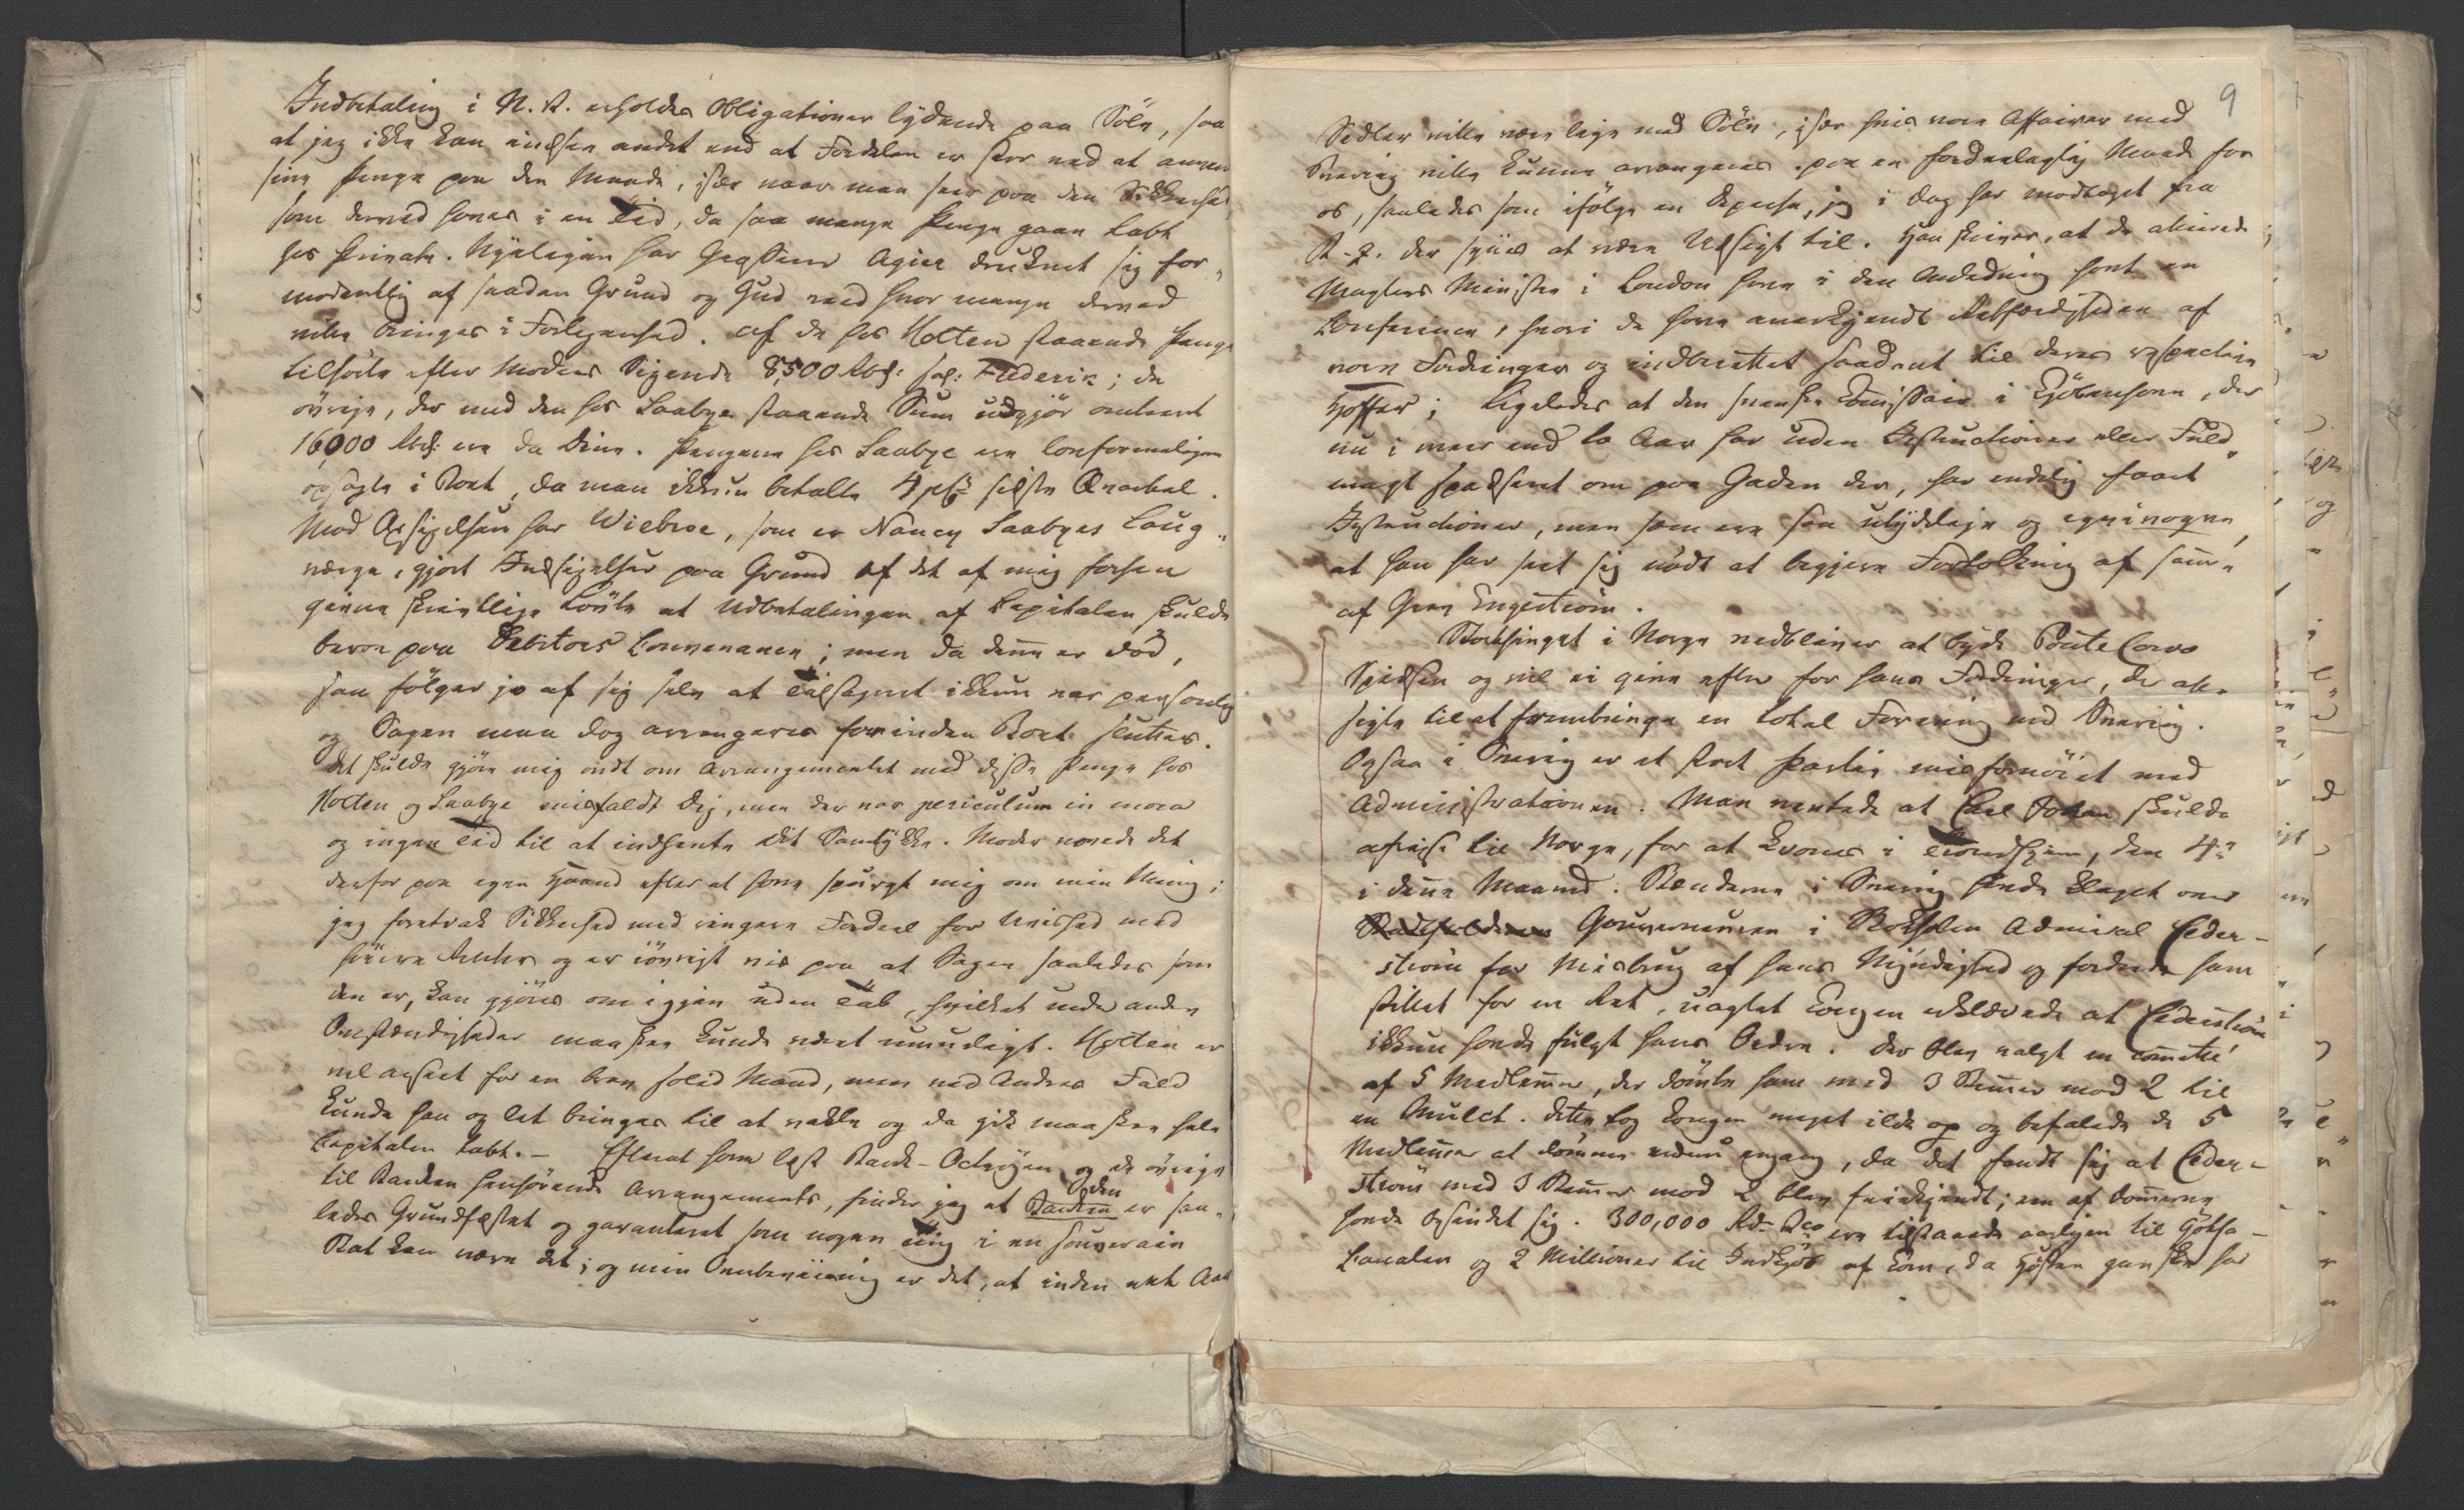 Indbetaling i N. V. erholdes Obligationer lydende paa Sölv, saa
at jeg ikke kan indsee andet end at Fordelen er stor ved at anven
sine Penge paa den Maade, især naar man seer paa den Sikkerhed
som derved haves i en Tid, da saa mange Penge gaae tabt
hos Private. Nyeligen har Grosserer Agier druknet sig for„
modentlig af saadan Grund og Gud veed hvor mange derved
ville bringes i Forlegenhed. Af de hos Holten staaende Penge
tilhörte efter Moders Sigende 8,500 Rbd: sal: Frederik; de
övrige, der med den hos Saabye staaende Sum udgjör omtrent
16,000 Rbd: ere da Dine. Pengene hos Saabye ere
opsagte i Root, da man ikkun betalte 4 pCt sidste Qvartal.
Mod Opsigelsen har Wiebroe, som er Nancy Saabyes Laug„
værge, gjort Indsigelser paa Grund af det af mig forhen
givne skrivtlige Lövte at Udbetalingen af Capitalen skulde
beroe paa Debitors Convenance; men da denne er död,
saa fölger jo af sig selv at Tilsagnet ikkun var personlig
og Sagen maa dog arrangeres forinden Root sluttes.
Det skulde gjöre mig ondt om Arrangementet med disse Penge hos
Holten og Saabye misfaldt Dig, men der var periculum in mora
og ingen Tid til at indhente Dit Samtykke. Moder vovede det
derfor paa egen Haand efter at have spurgt mig om min Mening;
jeg foretrak Sikkerhed med ringere Fordeel for Uvished med
höiere Renter og er iövrigt vis paa at Sagen saaledes som
den er, kan gjöres om igjen uden Tab, hvilket under andre
Omstændigheder maaskee kunde været umueligt. Holten er
vel anseet for en brav solid Mand, men ved Andres Fald
kunde han og let bringes til at vakle og da gik maaskee hele
Capitalen tabt. – Efterat have læst Bank-Octroyen og de övrige
til Banken henhörende Arrangements, finder jeg at Banken er saa„
ledes Grundfæstet og garanteret som nogen Ting i en souverain
Stat kan være det; og min Overbeviisning er det, at inden eet Aar
9
Sedler ville være lige med Sölv, især hvis vore Affairer med
Sverrig ville kunne arrangeres paa en fordeelagtig Maade for
os, saaledes som ifölge en Depeche, jeg i Dag har modtaget fra
der synes at være Udsigt til. Han skriver, at de allierede
Magters Ministre i London have i den Anledning havt en
Conference, hvori de have anerkjendt Retfærdigheden af
vore Fordringer og indberettet saadant til deres respective
Hoffer; Ligeledes at den svenske Comissair i Kjöbenhavn, der
nu i meer end to Aar har uden Instructioner eller Fuld„
magt spadseret om paa Gaden der, har endelig faaet
Instructioner, men som ere saa utydelige og eqvivoqve,
at han har seet sig nödt at begjere Fortolkning af samme
af Grev Engeström.
Storthinget i Norge vedbliver at byde Ponte Corvo
Spidsen og vil ei give efter for hans Fordringer, der alle
sigte til at frembringe en total Forening med Sverrig.
Ogsaa i Sverrig er et stort Partie misfornöiet med
Administrationen. Man ventede at Carl Johan skulde
afreise til Norge, for at krones i Trondhjem, den 4de
i denne Maaned. Stænderne i Sverrig havde klaget over
Gouverneuren i Stokholm Admiral Ceder-
ström for Misbrug af hans Myndighed og fordrede ham
stillet for en Ret, uagtet Kongen erklærede at Cederström
ikkun havde fulgt hans Ordre. Der blev valgt en Comitee
af 5 Medlemmer, der dömte ham med 3 Stemmer mod 2 til
en Mulct. Dette tog Kongen meget ilde op og befalede de 5
Medlemmer at dömme endnu engang, da det fandt sig at Ceder-
ström med 3 Stemmer mod 2 blev frikjendt; een af Dommerne
havde besindet sig. 300,000 Rd. Bco ere tilstaaede aarligen til Götha-
Canalen og 2 Millioner til Indkjöb af Korn, da Hösten ganske har